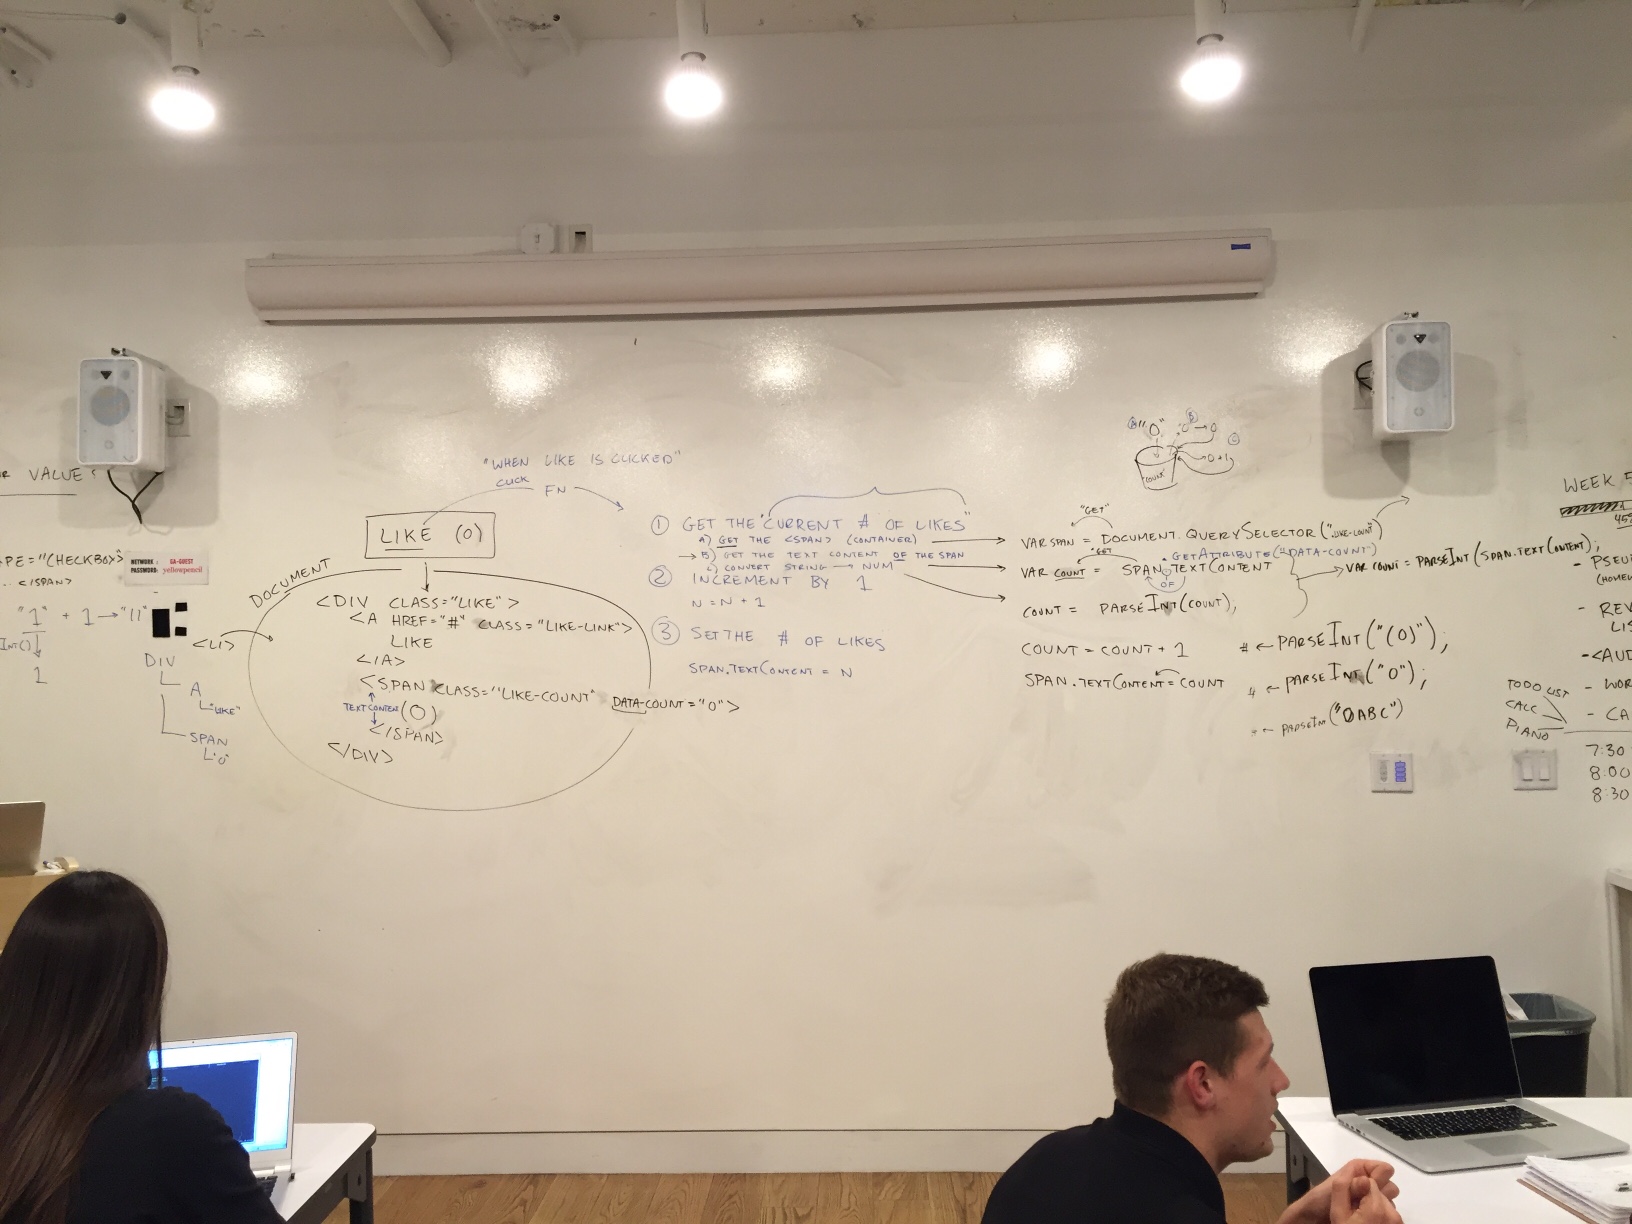 VALUE
PE="CHECKBOX">
</SPAN>
"1" + 1 → "11"
INT()
1
NETWORK: GA-GUEST
PASSWORD: yellowpencil
<LI>
DIV
A
"LIKE"
SPAN
"0"
"WHEN LIKE IS CLICKED"
CLICK
FN
LIKE (0)
DOCUMENT
<DIV CLASS="LIKE">
<A HREF="#" CLASS="LIKE-LINK">
LIKE
</A>
<SPAN CLASS="LIKE-COUNT" DATA-COUNT="0">
TEXTCONTENT (0)
</SPAN>
</DIV>
① GET THE "CURRENT # OF LIKES"
A) GET THE <SPAN> (CONTAINER)
→ B) GET THE TEXT CONTENT OF THE SPAN
C) CONVERT STRING → NUM
② INCREMENT BY 1
N = N + 1
③ SET THE # OF LIKES
SPAN.TEXTCONTENT = N
Ⓐ "0" Ⓑ "0" → 0 Ⓒ
0+1
"COUNT"
"GET"
VAR SPAN = DOCUMENT.QUERYSELECTOR(".LIKE-COUNT")
"GET" .GETATTRIBUTE("DATA-COUNT")
VAR COUNT = SPAN.TEXTCONTENT
OF
→ VAR COUNT = PARSEINT(SPAN.TEXTCONTENT);
COUNT = PARSEINT(COUNT);
COUNT = COUNT + 1
SPAN.TEXTCONTENT = COUNT
# ← PARSEINT("(0)");
# ← PARSEINT("0");
# ← PARSEINT("0ABC")
WEEK 5
45%
- PSEU
(HOMEW
- REV
LIS
- <AUD
- WOR
- CA
TODO LIST
CALC
PIANO
7:30
8:00
8:30